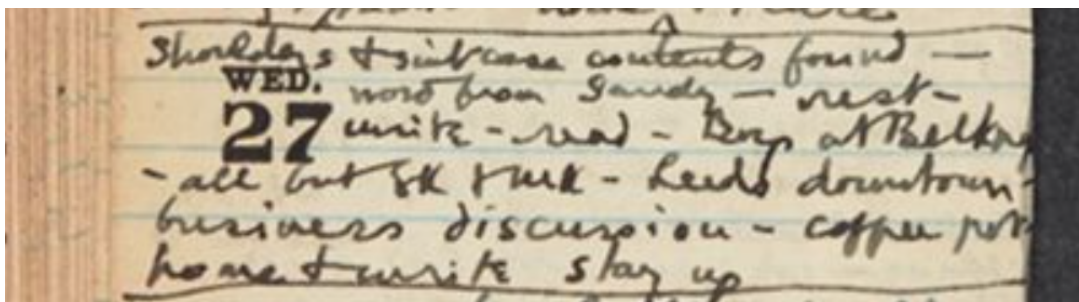 Shoulders & suitcase contents found —
WED. word from Sandy — rest —
27 write - read - Boys at Belknap
- all but SK & MK - Leeds downtown -
business discussion - coffee pot
home & write stay up